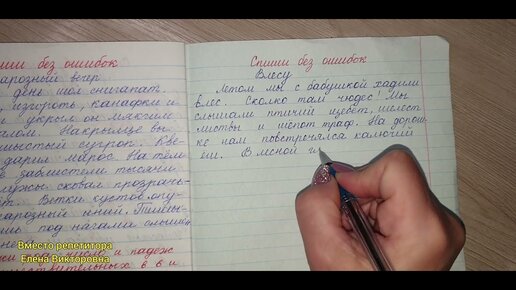 Спиши без ошибок
арозный вечер.
день шол снигапат.
, изгороть, канафки и
укрыл он мяхким
алом. Накрыльце вы
шыстый сугроп. Кве-
дарил марос. На тём
заблистели тысячи
лужы сковал прозрачь
т. Ветки кустов опу-
арозный иний.
шь под нагами слышен
Спиши без ошибок
Влесу
Летом мы с бабушкой хадили
влес. Сколко там чюдес! Мы
слышали птичий щебет, шелест
листвы и шепот траф. На дорош-
ке нам повстречялся калючий
В лесной г
Вместо репетитора
Елена Викторовна
и падеж